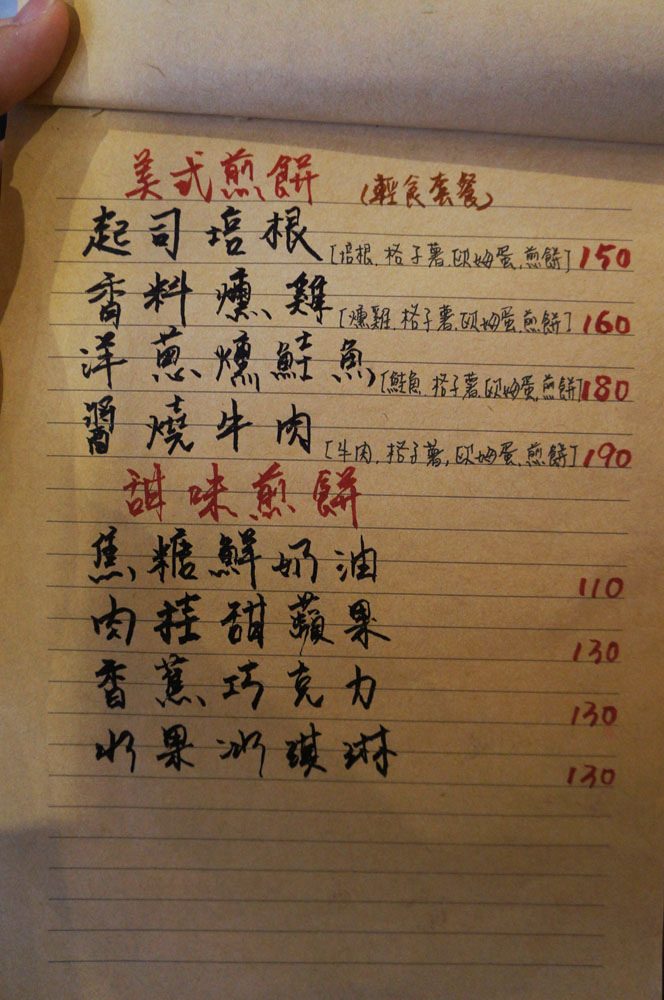 美式煎餅 (輕食套餐)
起司培根 [培根.格子薯.欧姆蛋.煎餅] 150
香料燻雞 [燻雞.格子薯.欧姆蛋.煎餅] 160
洋蔥燻鮭魚 [鮭魚.格子薯.欧姆蛋.煎餅] 180
醬燒牛肉 [牛肉.格子薯.欧姆蛋.煎餅] 190
甜味煎餅
焦糖鮮奶油 110
肉桂甜蘋果 130
香蕉巧克力 130
水果冰琪琳 130